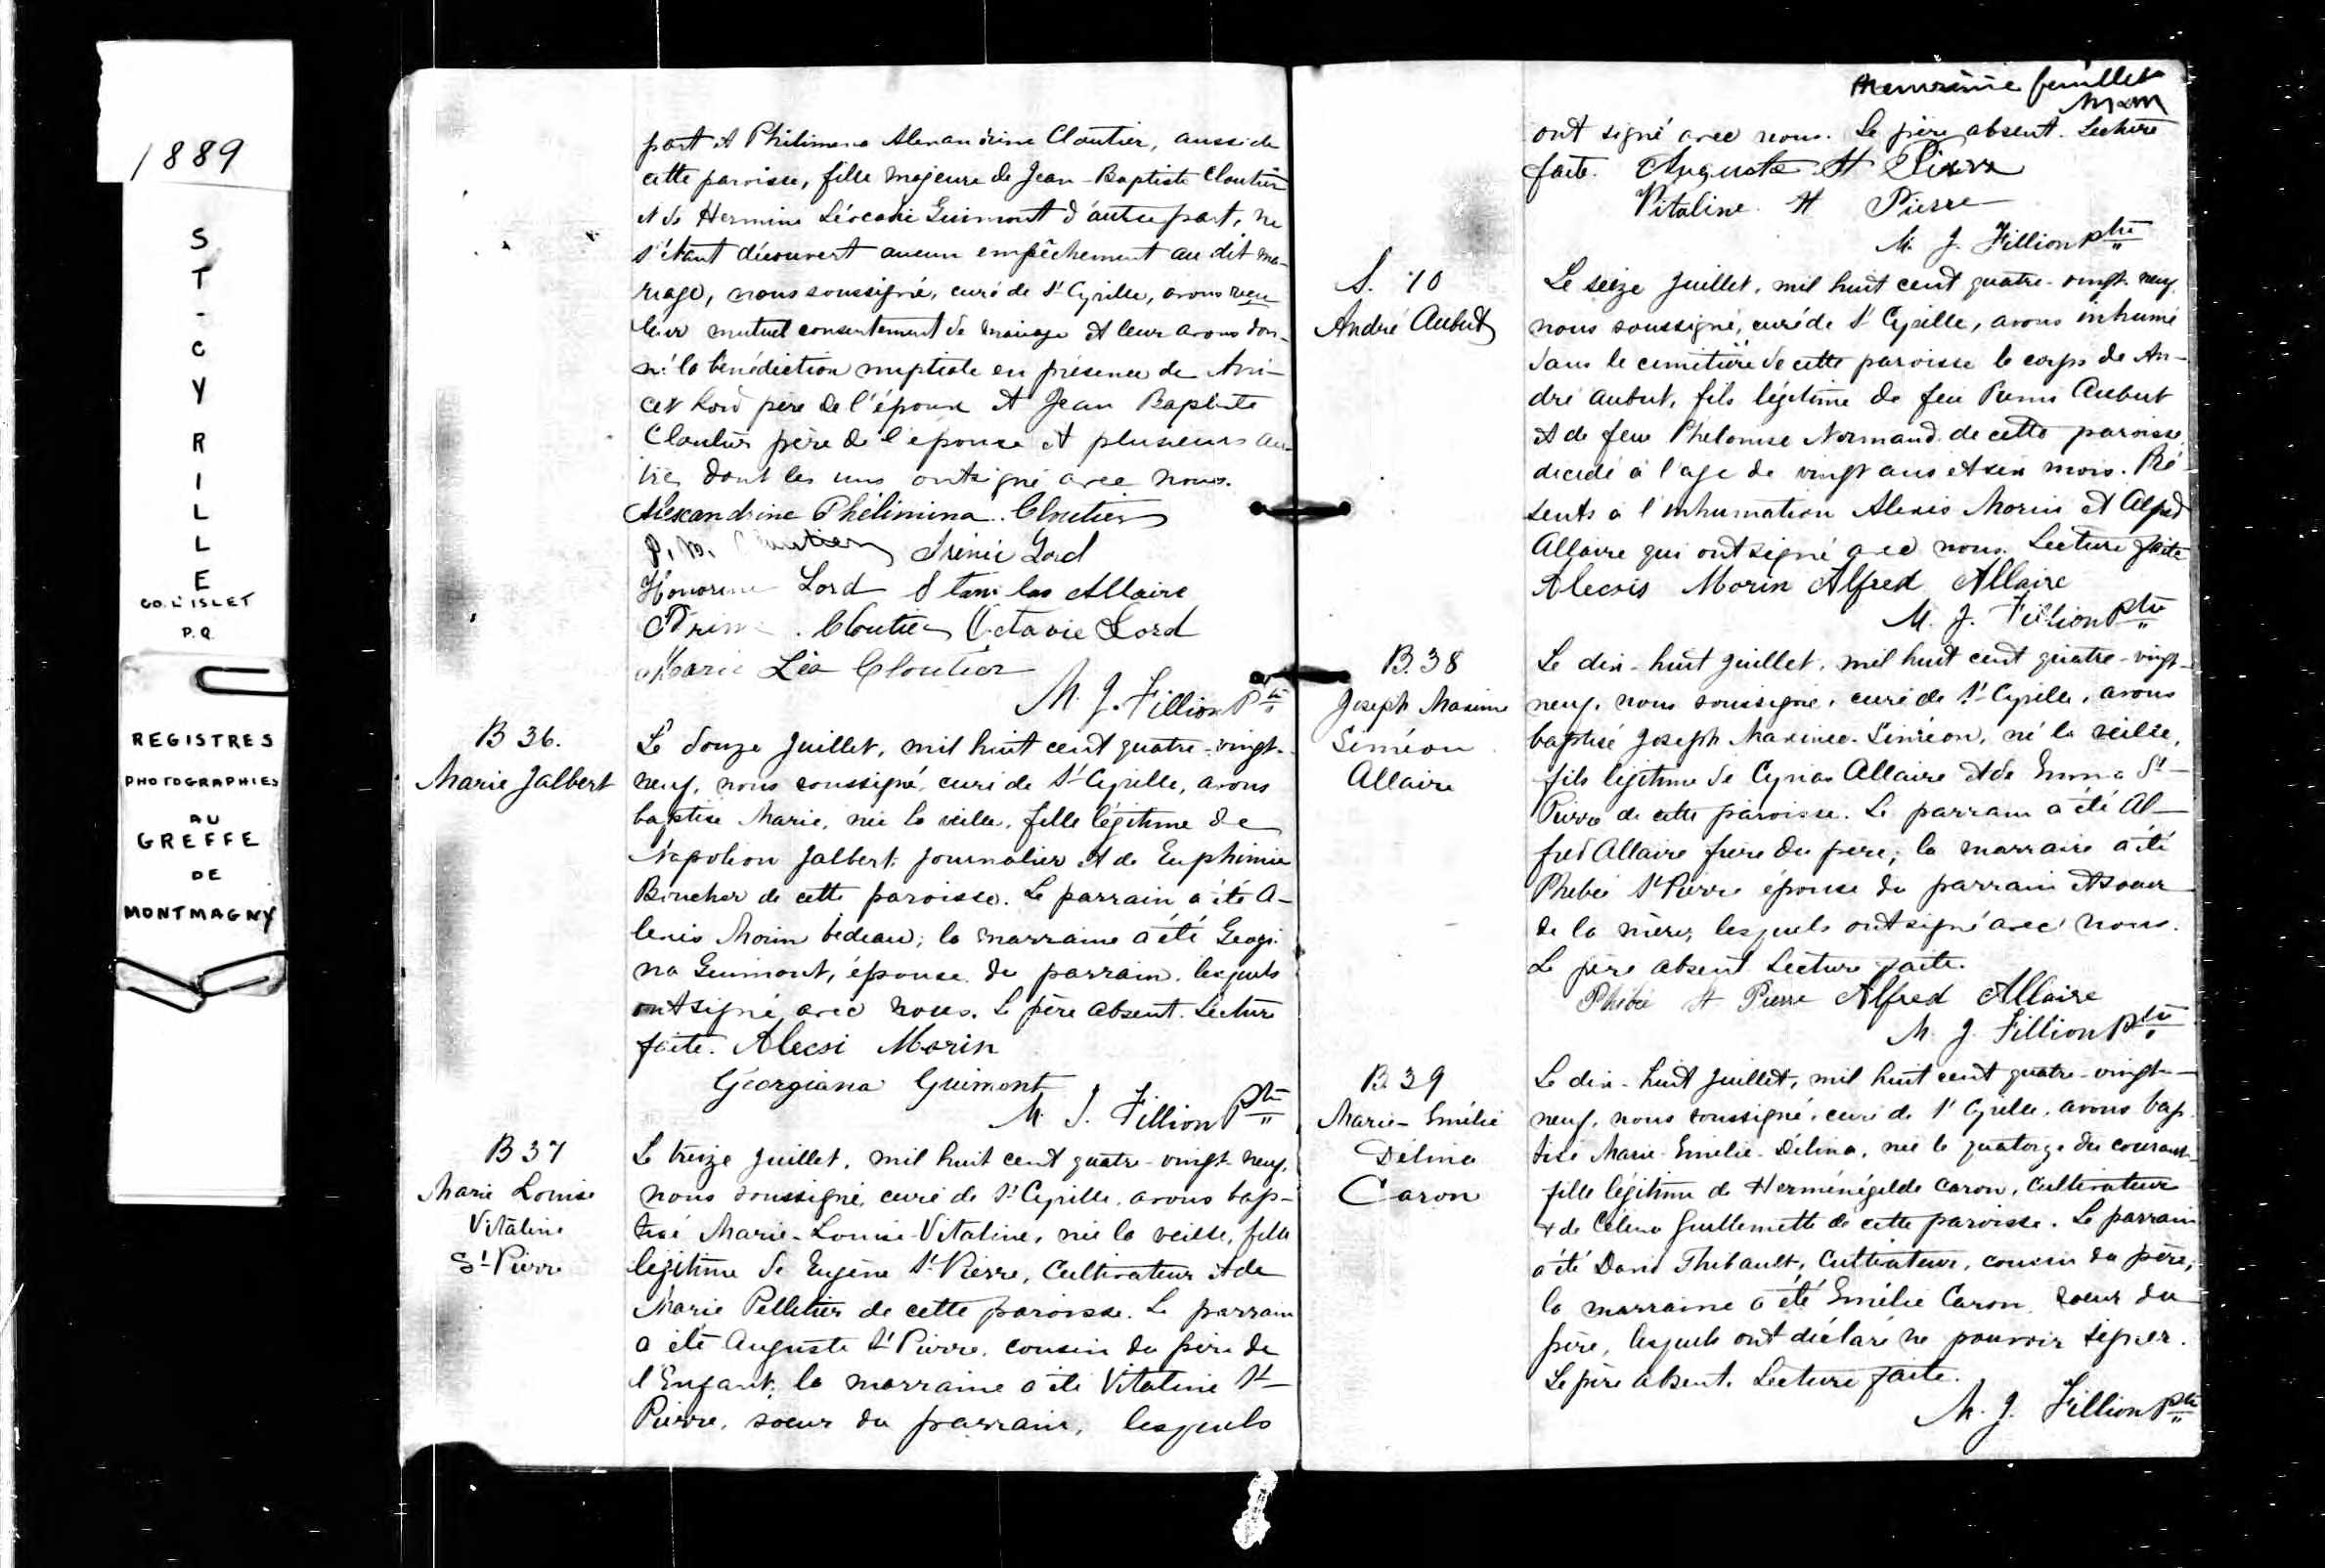 1889
S
T
-
C
Y
R
I
L
L
E
CO. L'ISLET
P.Q.
REGISTRES
PHOTOGRAPHIES
AU
GREFFE
DE
MONTMAGNY
part et Philimena Alexandrine Cloutier, aussi de
cette paroisse, fille majeure de Jean-Baptiste Cloutier
et de Hermine Léocadie Guimont d'autre part, ne
s'étant découvert aucun empêchement au dit ma-
riage, nous soussigné, curé de St Cyrille, avons reçu
leur mutuel consentement de mariage et leur avons don-
né la bénédiction nuptiale en présence de Ani-
cet Lord père de l'époux et Jean Baptiste
Cloutier père de l'épouse et plusieurs au-
tres dont les uns ont signé avec nous.
Alexandrine Phélimina Cloutier
Cloutier Irénie Lord
Honorine Lord Stanislas Allaire
Cloutier Octavie Lord
Marie Léa Cloutier
M. J. Fillion Ptre
B 36.
Marie Jalbert
Le douze Juillet, mil huit cent quatre-vingt-
neuf, nous soussigné, curé de St Cyrille, avons
baptisé Marie, née la veille, fille légitime de
Napoléon Jalbert journalier et de Euphémie
Boucher de cette paroisse. Le parrain a été A-
lexis Morin bedeau; la marraine a été Georgi-
na Guimont, épouse du parrain, lesquels
ont signé avec nous. Le père absent. Lecture
faite. Alecsi Morin
Georgiana Guimont
M. J. Fillion Ptre
B 37
Marie Louise
Vitaline
St Pierre
Le treize Juillet, mil huit cent quatre-vingt-neuf,
nous soussigné, curé de St Cyrille, avons bap-
tisé Marie-Louise-Vitaline, née la veille, fille
légitime de Eugène St Pierre, Cultivateur et de
Marie Pelletier de cette paroisse. Le parrain
a été Auguste St Pierre, cousin du père de
l'Enfant; la marraine a été Vitaline St
Pierre, soeur du parrain, lesquels
feuillet
ont signé avec nous. Le père absent. Lecture
faite. Auguste St Pierre
Vitaline St Pierre
M. J. Fillion ptre
S. 10
André Aubut
Le seize Juillet, mil huit cent quatre-vingt-neuf,
nous soussigné, curé de St Cyrille, avons inhumé
dans le cimetière de cette paroisse le corps de An-
dré Aubut, fils légitime de feu Remi Aubut
et de feue Phelomise Normand de cette paroisse,
décédé à l'age de vingt ans et six mois. Pré-
sents à l'inhumation Alexis Morin et Alfred
Allaire qui ont signé avec nous. Lecture faite
Alecsis Morin Alfred Allaire
M. J. Fillion Ptre
B. 38
Joseph Maxime
Siméon
Allaire
Le dix-huit Juillet, mil huit cent quatre-vingt-
neuf, nous soussigné, curé de St Cyrille, avons
baptisé Joseph Maxime-Siméon, né la veille,
fils légitime de Cyrias Allaire et de Emma St-
Pierre de cette paroisse. Le parrain a été Al-
fred Allaire frère du père; la marraine a été
Phebée St Pierre épouse du parrain et soeur
de la mère, lesquels ont signé avec nous.
Le père absent. Lecture faite.
Phébée St Pierre Alfred Allaire
M. J. Fillion Ptre
B. 39
Marie-Emélie
Délina
Caron
Le dix-huit Juillet, mil huit cent quatre-vingt-
neuf, nous soussigné, curé de St Cyrille, avons bap-
tisé Marie-Emélie-Délina, née le quatorze du courant
fille légitime de Herménégilde Caron, Cultivateur
& de Célina Guillemette de cette paroisse. Le parrain
a été David Thibault, Cultivateur, cousin du père;
la marraine a été Emélie Caron soeur du
père, lesquels ont déclaré ne pouvoir signer.
Le père absent. Lecture faite.
M. J. Fillion Ptre